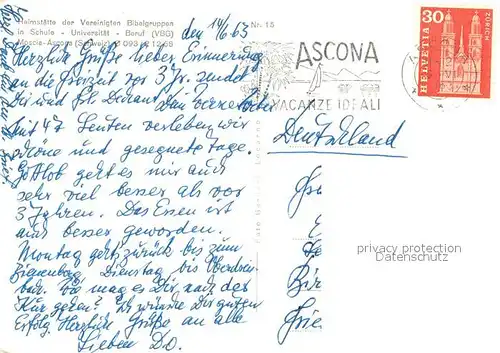 Heimstätte der Vereinigten Bibelgruppen
in Schule - Universität - Beruf (VBG)
Moscia-Ascona (Schweiz) ☎ 093 2 12 69
Nr. 15
den 14/6 63
Herzliche Grüße lieber Erinnerung
an die Freizeit vor 3 Jr. sendet
Dir und
Mit 47 Leuten verleben wir
schöne und gesegnete Tage.
Gottlob geht es mir auch
sehr viel besser als vor
3 Jahren. Das Essen ist
auch besser geworden.
Montag geht's zurück bis zum
Bienenberg, Dienstag bis
Wo mag es Dir nach der
Kur gehen? Ich wünsche Dir guten
Erfolg. Herzliche Grüße an alle
Lieben D.O.
ASCONA
VACANZE IDEALI
HELVETIA
30
ZÜRICH
Deutschland
privacy protection
Datenschutz